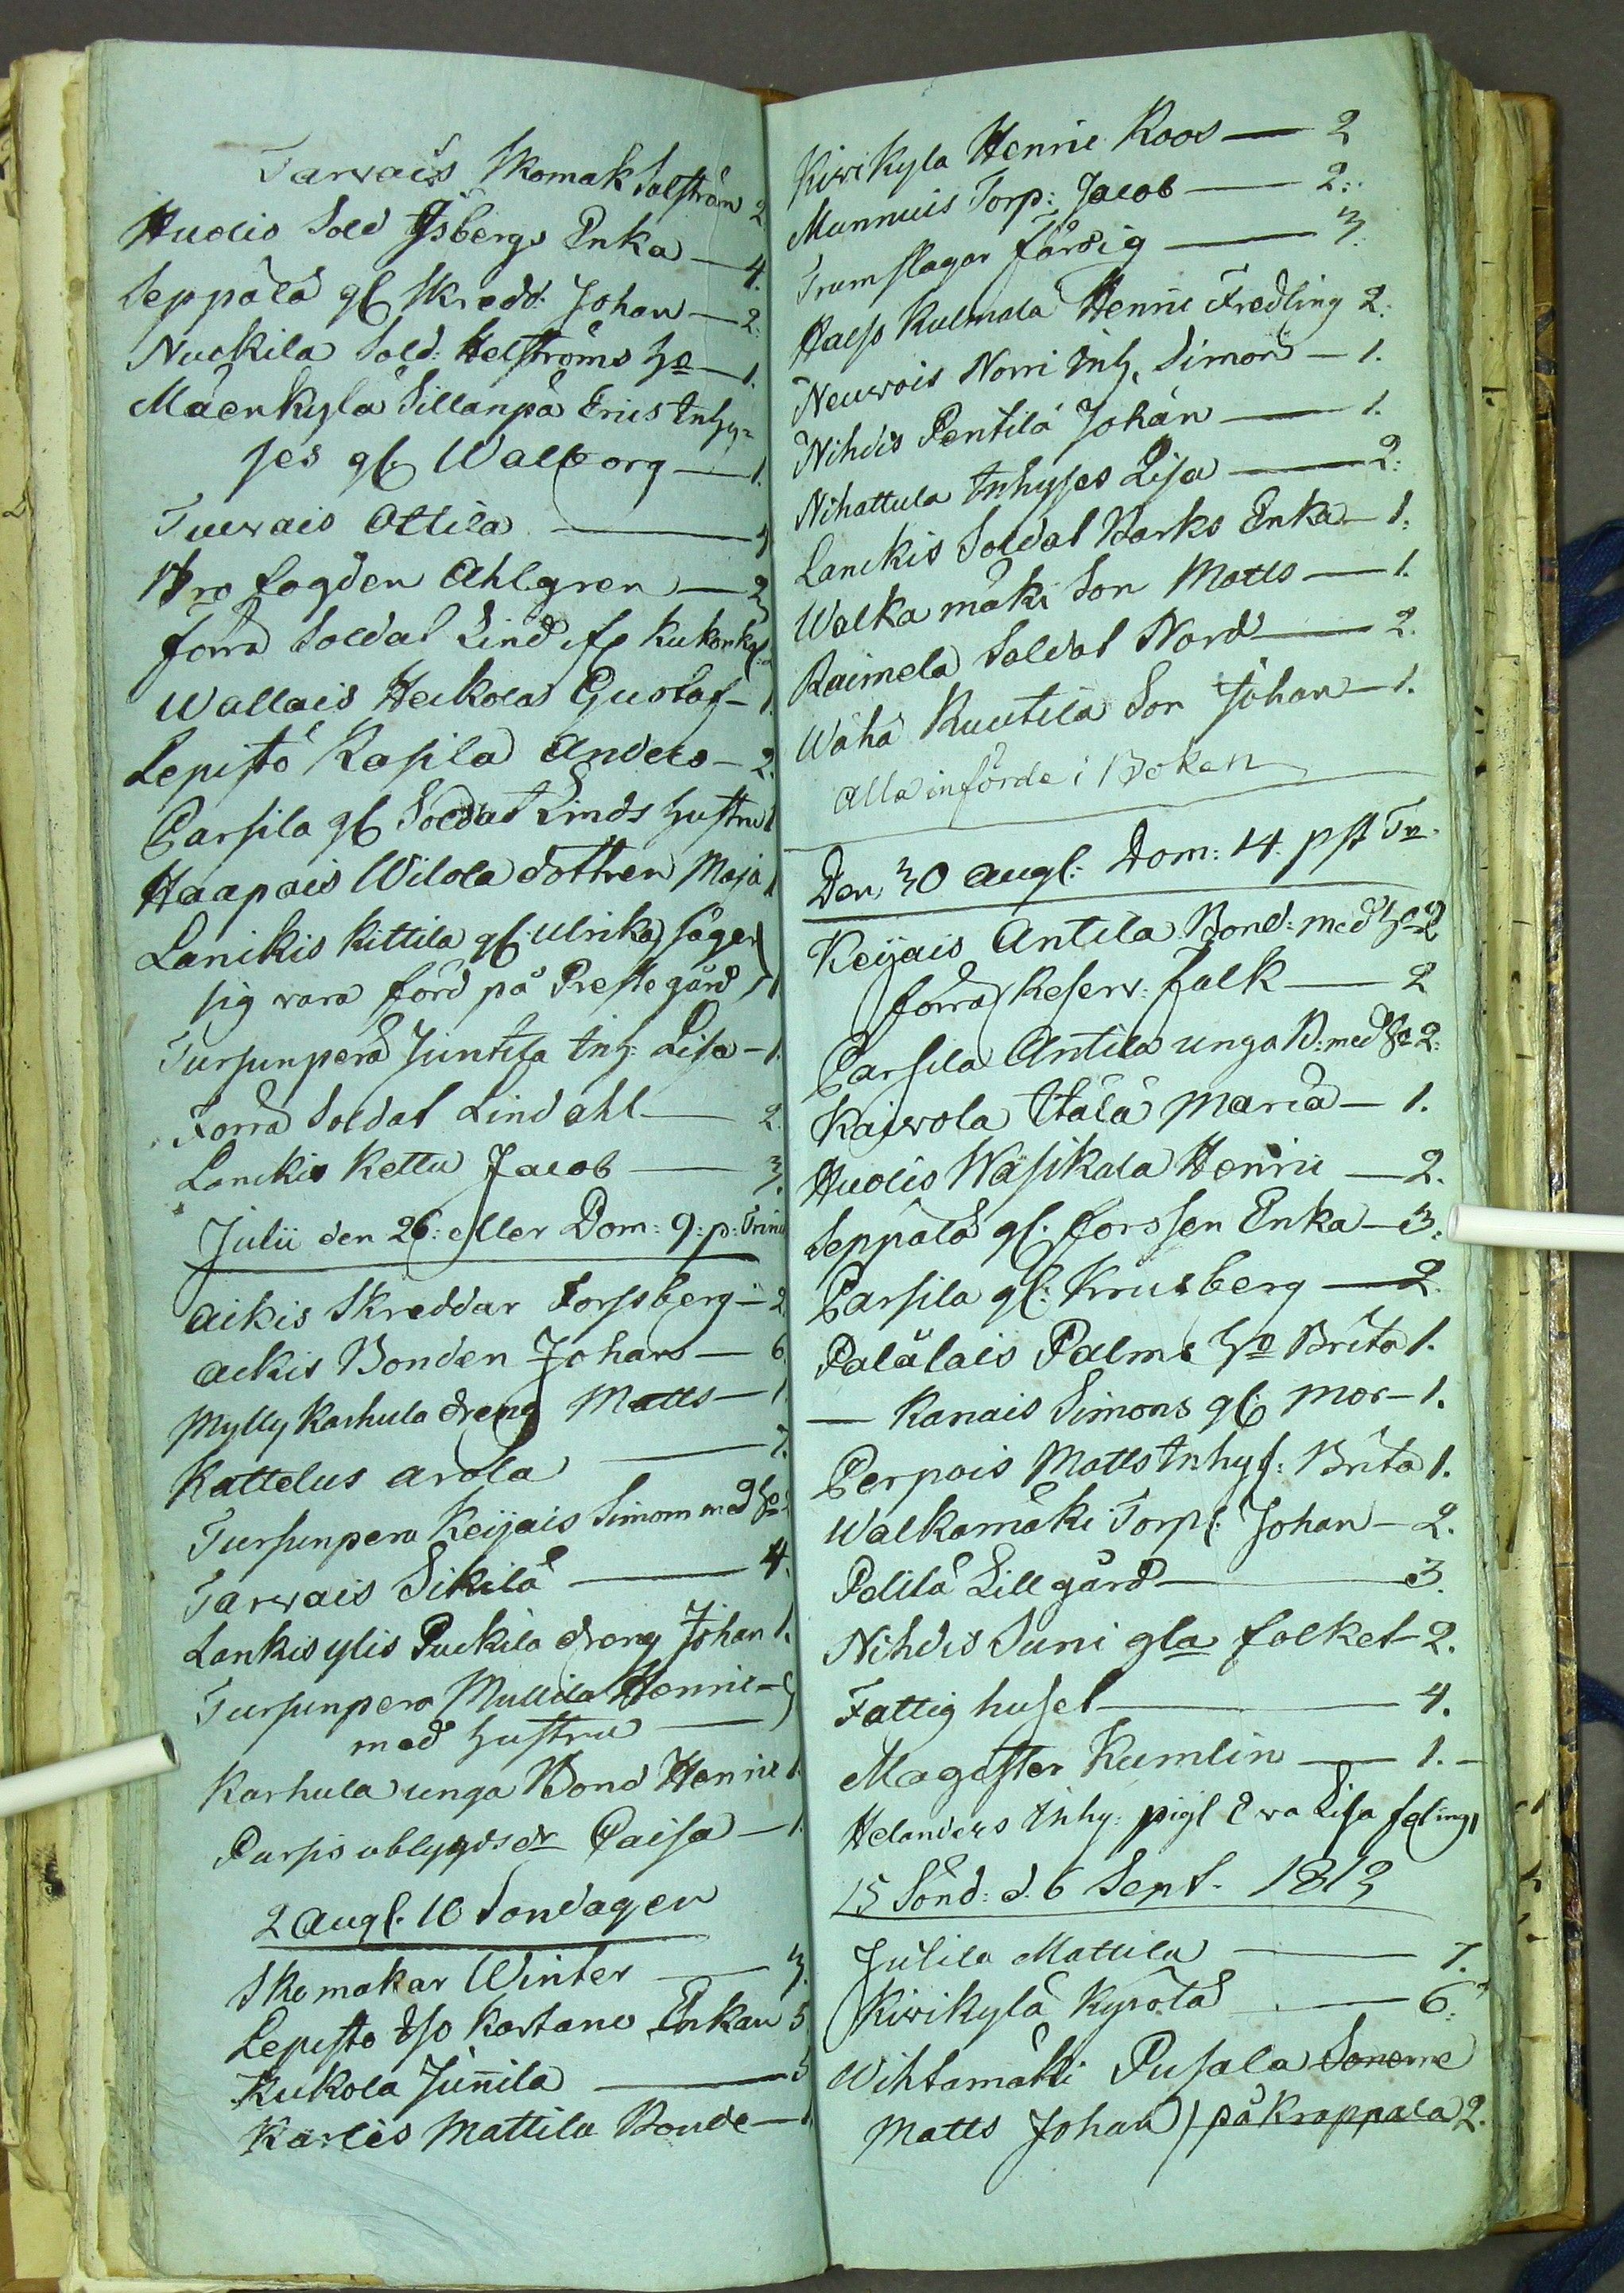 Tarvais Skomak Salström 2
Huolio Sold Ysbergs Enka — 4.
Seppälä gl Skredd: Johan — 2:
Nuckila Sold: Helströms Ho — 1.
Mäenkylä Sillanpä Erics Inhy=
ses gl. Walborg — 1.
Tuwais Ottila —
Pro fogden Ahlgren — 2
forra Soldat Lind if Kukonky:
Wallais Heikola Gustaf — 1.
Lepistö Kasila Anders — 2.
Parsila gl Soldat Linds hustru 1
Haapois Wilola dottren Maja 1
Lanikis Kittila gl. Ulrika säger
sig vara förd på Prestegård 1
Tursunperä Juntila Inh: Lisa — 1.
Forra Soldat Lindahl — 2.
Lanckis Kettu Jacob — 3.
Julii den 26: eller Dom: 9: p: Trini
Aikis Skreddar Forssberg — 2
Ackis Bonden Johans — 6.
Mylly Karhula dreng Matts — 1.
Kattelus Arola — 7.
Tursunpera Keijais Simon med Ho
Tarvais Sikilä — 4.
Lankis ylis Puckila dreng Johan 1.
Tursunpera Mullila Henric —
med hustru —
Karhula unga Bond Henric 1.
Pursis ablygds dr Caisa — 1.
2 Augl. 10 Sondagen
Skomakar Winter — 3.
Lepisto Iso Kartano Enkan 5
Kukola Junnila — 5
Karlis Mattila Bonde — 1.
Kivikyla Henric Koos — 2
Munnuis Torp: Jacob — 2:
Trumslagar färdig — 3.
Haeso Kulmala Henric Fredling 2.
Neuvois Norri Inh, Simon — 1.
Nihdis Pentilä Johan — 1.
Nihattula Inhyses Lisa — 2:
Lanckis Soldat Barks Enka — 1:
Walkamäki Son Matts — 1.
Raimela Soldat Nord — 2.
Wähä Kuutila Son Johan — 1.
Alla införde i Boken
Den 30 Augl: Dom: 14. pst Tr.
Keijais Antila Bond: med Ho 2
forra Reserv: Falk — 2
Parsila Antila unga B: med Ho 2:
Kaivola Ylälä Maria — 1.
Huolis Wäsikala Henric — 2.
Seppälä gl. Forssen Enka — 3:
Parsila gl: Krusberg — 2
Palälais Palms Ho Brita 1.
— Kanais Simons gl. mor — 1.
Perpois Matts Inhys: Brita 1.
Walkamäki Torp: Johan — 2.
Pelilä Lillgård — 3.
Nihdis Suni gla folket — 2.
Fattig huset — 4.
Magister Kumlin — 1. —
Helanders Inhy: pigl Eva Lisa
15 Sönd: d. 6 Sept. 1813
Julila Mattila — 7.
Kivikylä Kyrölä — 6:
Wihtamäki Pusala Sonerne
Matts Johan) på Krappala 2.